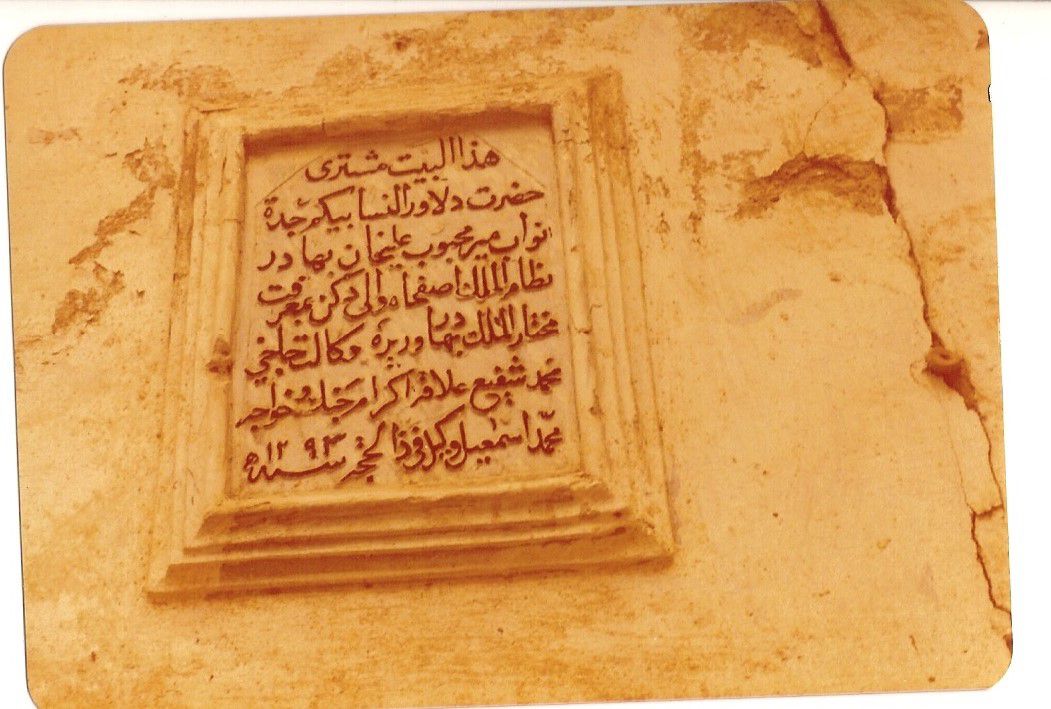 هذا البيت مشترى
حضرت دلاور النسا بيكم جدة
نواب مير محبوب عليخان بهادر
نظام الملك اصفجاه والى دكن بمعرفت
مختار الملك بهادر وزيره وكالت حاجي
محمد شفيع علاقه اكرام جنك خواجه
محمد اسمعيل وكيل فى ذالحجه سنه ١٢٩٣ ه